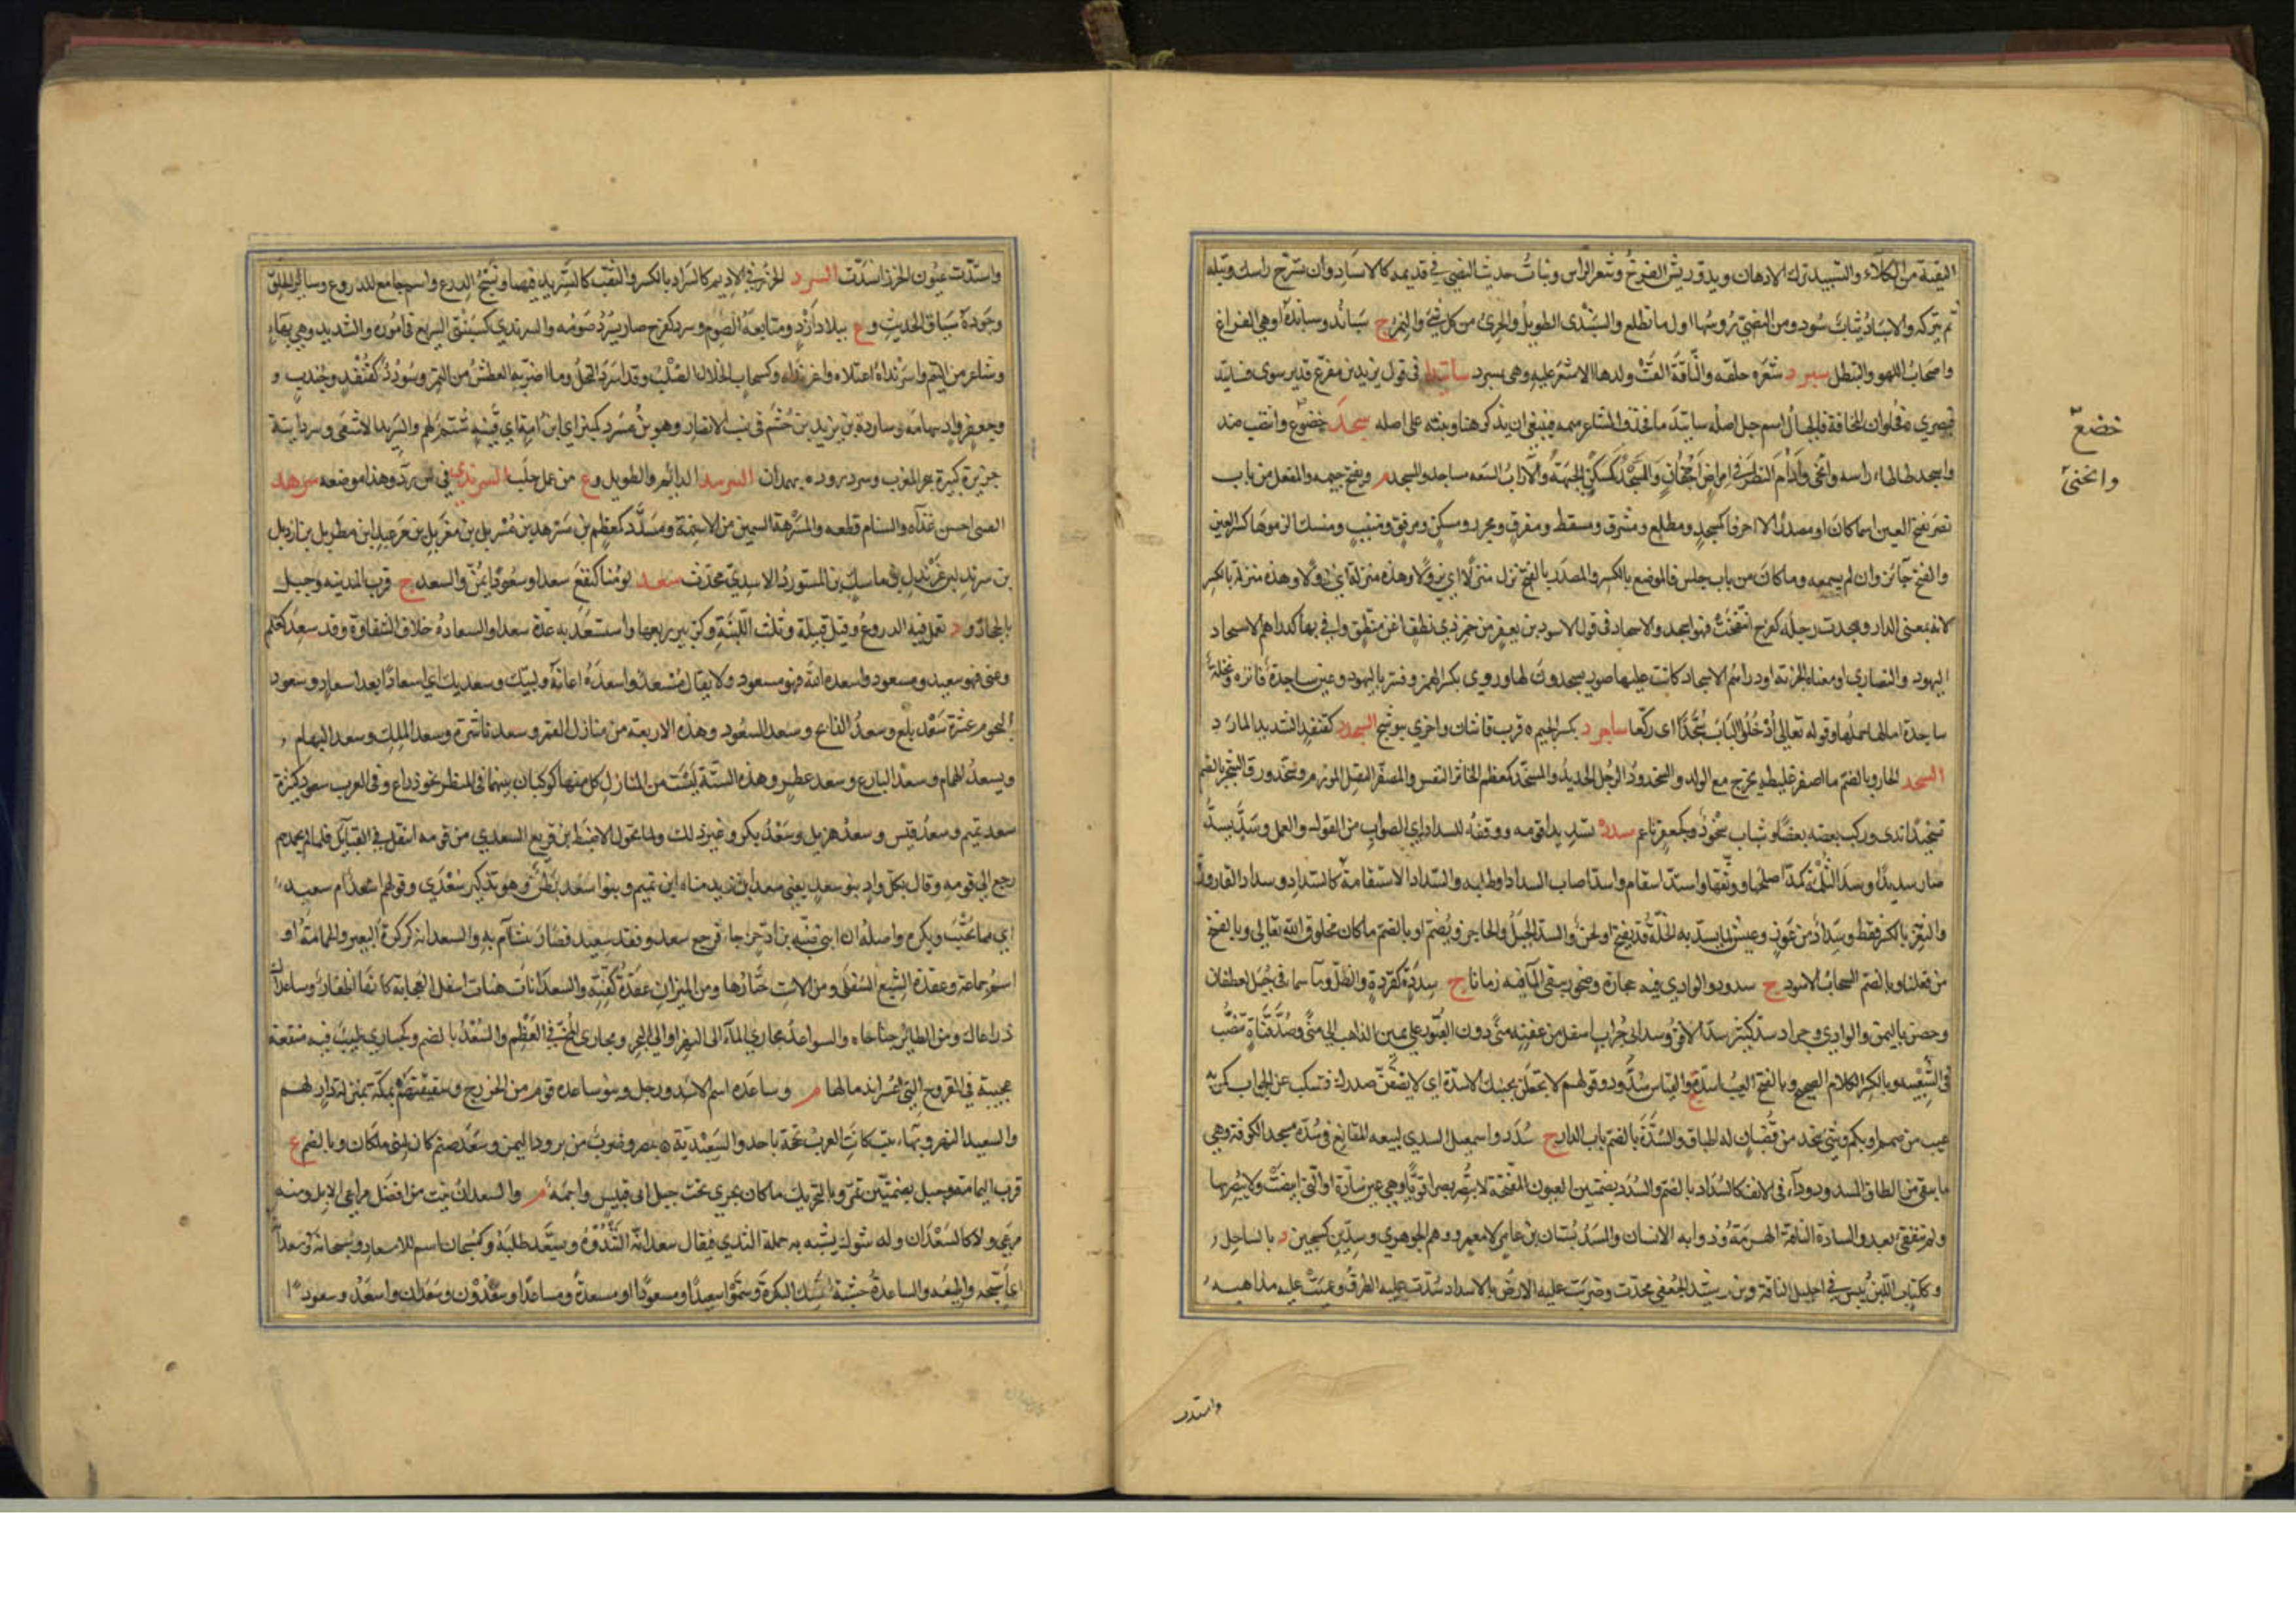 البقية من الكلاء والتسبيد ترك الادهان وبدو ريش الفرخ وشعر الراس ونبات حديث النصي في قديمه كالاسباد وان تسرح راسك وتبله
ثم تتركه والاسباد ثياب سود ومن النصي رؤسها اول ما تطلع والسبندى الطويل والجرئ من كل شئ والنمر ج سباند وسباندة او هي الفراغ
واصحاب اللهو والتبطل سبرد شعره حلقه والناقة القت ولدها لا شعر عليه وهي مسبرد ساتيدا في قول يزيد بن مفرغ فدير سوى فساتيدا
فبصرى فحلوان المخافة فالجبال اسم جبل اصله ساتيدما فحذف الشاعر ميمه فينبغي ان يذكر هنا وينبه على اصله سجد خضع وانتصب ضد
خضع
وانحنى
واسجد طاطاء راسه وانحنى وادام النظر في امراض اجفان والمسجد كمسكن الجبهة والآراب السبعه مساجد والمسجد م ويفتح جيمه والمفعل من باب
نصر بفتح العين اسما كان او مصدرا الا احرفا كمسجد ومطلع ومشرق ومسقط ومفرق ومجزر ومسكن ومرفق ومنبت ومنسك الزموها كسر العين
والفتح جائز وان لم يسمعه وما كان من باب جلس فالموضع بالكسر والمصدر بالفتح نزل منزلا اي نزولا وهذه منزله
لانه بمعنى الدار وسجدت رجله كفرح انتفخت فهو اسجد والاسجاد في قول الاسود بن يعفر من خمر ذي نطف اغن منطق وافى بها كدراهم الاسجاد
اليهود والنصارى او معناه الجزية او دراهم الاسجاد كانت عليها صور يسجدون لها وروي بكسر الهمز وفسر باليهود وعين ساجدة فاترة ونخلة
ساجدة امالها حملها وقوله تعالى ادخلوا الباب سجدا اى ركعا ساجرد بكسر الجيم ة قرب قاشان واخرى ببوشنج
السخد الحار وبالضم ما اصفر غليظ يخرج مع الولد والسخدود الرجل الحديد والمسخد كمعظم الخاثر النفس والمصفر الثقيل المورم وسخد ورق الشجر بالضم
تسخيدا ندى وركب بعضه بعضا وشباب سخود سدد تسديدا قومه ووفقه للسداد اي الصواب من القول والعمل وسد يسد
صار سديدا وسد الثلمة كمد اصلحها ووثقها واستد استقام واسد اصاب السداد او طلبه والسداد الاستقامة كالسدد وسداد القارورة
والثغر بالكسر فقط وسداد من عوز وعيش لما يسد به الخلة وقد يفتح او لحن والسد الجبل والحاجز ويضم او بالضم ما كان مخلوقا لله تعالى وبالفتح
من فعلنا وبالضم السحاب الاسود ج سدود والوادى فيه حجارة وصخور يبقى الماء فيه زمانا ج سددة كقردة والظل وماء سماء في جبل لغطفان
وحصن باليمن والوادي وجراد سد كثير سد الافق وسد ابي جراب اسفل من عقبة منى دون القبور على يمين الذاهب الى منى وسد قناة تصب
فى الشعيبة وبالكسر الكلام الصحيح وبالفتح العيب ج اسدة والقياس سدود وقولهم لا تجعلن بجنبك الاسدة اي لا يضيقن صدرك فتسكت عن الجواب كمن به
عيب من صمم او بكم وشئ يتخذ من قضبان له اطباق والسدة بالضم باب الدار ج سدد واسمعيل السدي لبيعه المقانع في سدة مسجد الكوفة وهي
ما يبقى من الطاق المسدود وداء في الانف كالسداد بالضم والسدد بضمتين العيون المفتحة لا تبصر بصرا قويا وهي عين سادة او التي ابيضت ولا يبصر بها
ولم تنفقئ بعد والسادة الناقة الهرمة وذوابه الانسان والمسد بستان ابن عامر لا معمر ووهم الجوهري وسدين كسجين د بالساحل و
وككتاب اللبن يبس في احليل الناقة وبن رشيد الجعفى محدث وضربت عليه الارض بالاسداد سدت عليه الطرق وعميت عليه مذاهبه
واستدت
واستدت عيون الخرز انسدت السرد الخرز في الاديم كالسراد بالكسر والثقب كالتسريد فيهما ونسج الدرع واسم جامع للدروع وسائر الحلق
وجودة سياق الحديث وع ببلاد ازد ومتابعة الصوم وسرد كفرح صار يسرد صومه والسرندي كسبنتى السريع في اموره والشديد وهي بهاء
وشاعر من التيم واسرنداه اعتلاه واغرنداه وكسحاب الخلال الصلب وقد اسرد النخل وما اضر به العطش من التمر وسردد كقنفذ وجندب و
وجعفر واد بتهامة وساردة بن يزيد بن جشم في نسب الانصار وهو ابن مسرد كمنبر اي ابن امة او قينة شتم لهم والسريد الاشفى وسردانية
جزيرة كبيرة ببحر المغرب وسردرود ة بهمدان السرمد الدائم والطويل وع من عمل حلب السرندي في س ر د وهذا موضعه سرهد
الصبى احسن غذاه والسنام قطعه والمسرهد السمين من الاسنمة ومسدد كمعظم بن مسرهد بن مسربل بن مغربل بن مرعبل
بن سرندل بن عرندل بن ماسك بن المستورد الاسدي محدث سعد يومنا كنفع سعدا وسعودا يمن والسعد ع قرب المدينه وجبل
بالحجاز ود تعمل فيه الدروع وقيل قبيلة وثلث اللبنة وكزبير ربعها واستسعد به عده سعدا والسعاده خلاف الشقاوة وقد سعد كعلم
وعني فهو سعيد ومسعود واسعده الله فهو مسعود ولا يقال مسعد واسعده اعانه ولبيك وسعديك اي اسعادا بعد اسعاد وسعود
النجوم عشرة سعد بلع وسعد الذابح وسعد السعود وهذه الاربعة من منازل القمر وسعد ناشرة وسعد الملك وسعد البهام و
وسعد الهمام وسعد البارع وسعد مطر وهذه الستة ليست من المنازل كل منها كوكبان بينهما في المنظر نحو ذراع وفي العرب سعود كثيرة
سعد تميم وسعد قيس وسعد هذيل وسعد بكر وغير ذلك ولما تحول الاضبط ابن قريع السعدي من قومه انتقل في القبائل فلما لم يحمدهم
رجع الى قومه وقال بكل واد بنو سعد يعني سعد بن زيد مناة ابن تميم وبنوا سعد بطن وهو تذكير سعدى وقولهم اسعد ام سعيد
اي مما يحب ويكره واصله ان ابنى ضبة بن اد خرجا فرجع سعد وفقد سعيد فصار يتشاءم به والسعدانة كركرة البعير والحمامة او
اسم حمامة وعقدة الشسع السفلى ومن الاست حتارها ومن الميزان عقدة كفته والسعدانات هنات اسفل العجاية كانها اظفار وساعداك
ذراعاك ومن الطائر جناحاه والسواعد مجارى الماء الى النهر او الى البحر ومجارى المخ في العظم والسعد بالضم وكحبارى طيب فيه منفعة
عجيبة في القروح التي عسر اندمالها م وساعدة اسم الاسد ورجل وبنو ساعدة قوم من الخزرج وسقيفتهم بمكة بمنزلة دار لهم
والسعيد النهر وبهاء بيت كانت العرب تحجه باحد والسعيدية ة بمصر وضرب من برود اليمن وسعد صنم كان لبنى ملكان وبالضم ع
قرب اليمامة وجبل بضمتين تمر وبالتحريك ماء كان يجري تحت جبل ابى قبيس واجمة م والسعدان نبت من افضل مراعى الابل ومنه
مرعى ولا كالسعدان وله شوك يشبه به حلمة الثدي فيقال سعدانة الثندؤة وتسعد طلبه وكسبحان اسم للاسعاد وسبحانه وسعدانه
اى اسبحه واطيعه والساعدة خشبة تمسك البكرة وسموا سعيدا ومسعودا ومسعدة ومساعدا وسعدون وسعدان واسعد وسعودا